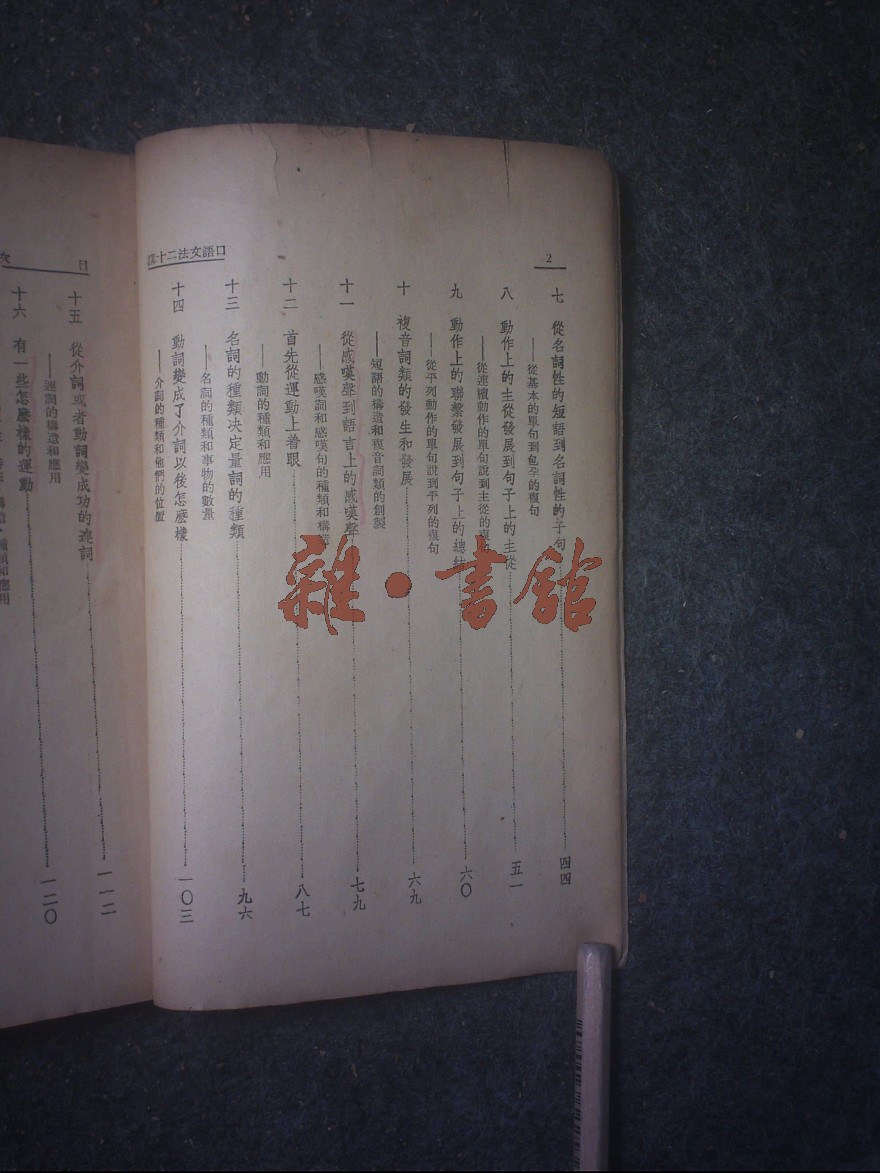 2
口語文法二十講
七　從名詞性的短語到名詞性的子句……四四
——從基本的單句到包孕的複句
八　動作上的主從發展到句子上的主從……五一
——從連續動作的單句說到主從的複句
九　動作上的聯繫發展到句子上的總結……六〇
——從平列動作的單句說到平列的複句
十　複音詞類的發生和發展……六九
——短語的構造和複音詞類的創製
十一　從感嘆聲到語言上的感嘆聲……七九
——感嘆詞和感嘆句的種類和構造
十二　首先從運動上着眼……八七
——動詞的種類和應用
十三　名詞的種類決定量詞的種類……九六
——名詞的種類和事物的數量
十四　動詞變成了介詞以後怎麽樣……一〇三
——介詞的種類和他們的位置
目次
十五　從介詞或者動詞變成功的連詞……一一二
——連詞的構造和應用
十六　有一些怎麽樣的運動……一二〇
構造、種類和應用
雜·書館